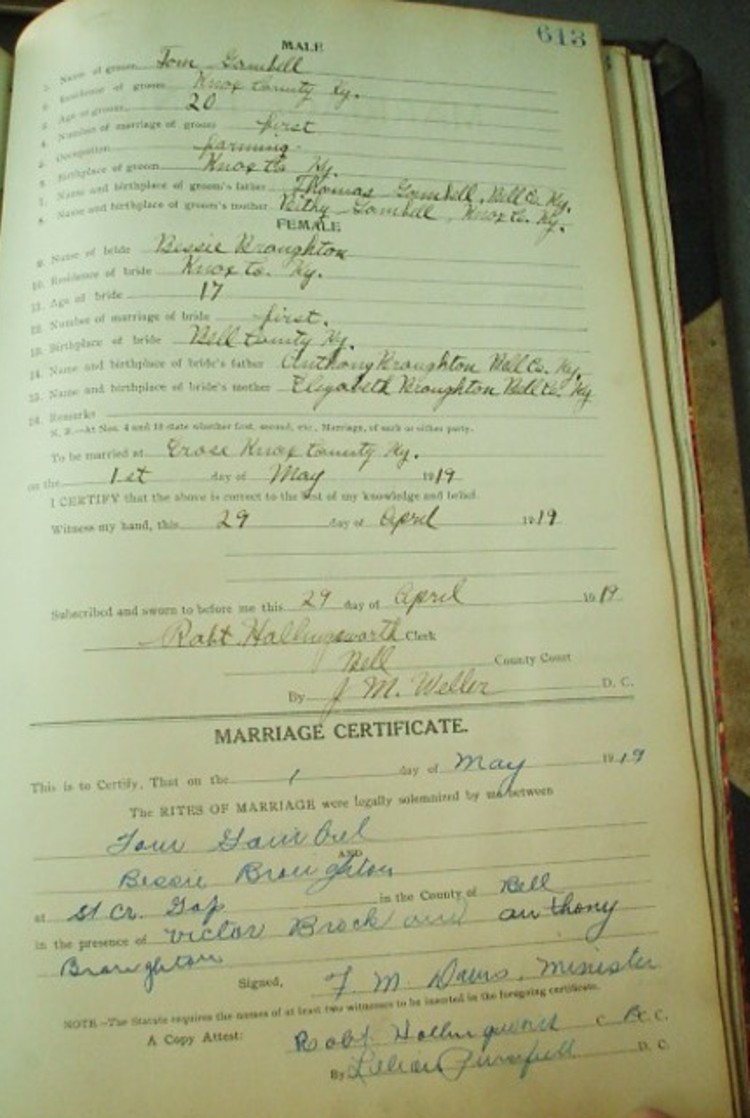 613
MALE
1. Name of groom Tom Gambell
2. Residence of groom Knox County Ky.
3. Age of groom 20
4. Number of marriage of groom first
5. Occupation farming
6. Birthplace of groom Knox Co Ky.
7. Name and birthplace of groom's father Thomas Gambell, Bell Co. Ky.
8. Name and birthplace of groom's mother Bithy Gambell, Knox Co. Ky.
FEMALE
9. Name of bride Bissie Broughton
10. Residence of bride Knox Co. Ky.
11. Age of bride 17
12. Number of marriage of bride first.
13. Birthplace of bride Bell County Ky.
14. Name and birthplace of bride's father Anthony Broughton Bell Co. Ky.
15. Name and birthplace of bride's mother Elizabeth Broughton Bell Co. Ky
16. Remarks
N. B.—At Nos. 4 and 12 state whether first, second, etc., Marriage, of such or either party.
To be married at Knox County Ky.
on the 1st day of May 1919
I CERTIFY that the above is correct to the best of my knowledge and belief.
Witness my hand, this 29 day of April 1919
Subscribed and sworn to before me this 29 day of April 1919
Robt Hollingsworth Clerk
Bell County Court
By J. M. Weller D. C.
MARRIAGE CERTIFICATE.
This is to Certify, That on the 1 day of May 1919
The RITES OF MARRIAGE were legally solemnized by me between
Tom Gambrel
AND
Bessie Broughton
at St Cr. Gap in the County of Bell
in the presence of Victor Brock and anthony
Broughton
Signed, F. M. Davis, Minister
NOTE.—The Statute requires the names of at least two witnesses to be inserted in the foregoing certificate.
A Copy Attest: Robt Hollingsworth C. B. C. C.
By Lillian D. C.